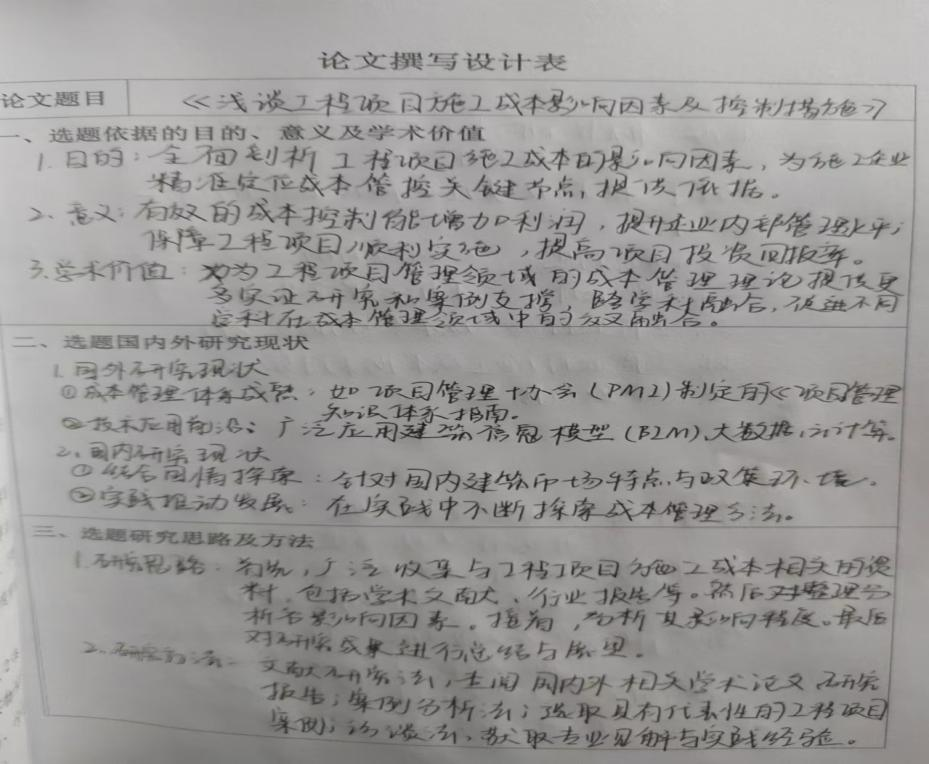 论文撰写设计表
论文题目 《浅谈工程项目施工成本影响因素及控制措施》
一、选题依据的目的、意义及学术价值
1.目的：全面剖析工程项目施工成本的影响因素，为施工企业
精准定位成本管控关键节点，提供依据。
2、意义：有效的成本控制能增加利润，提升企业内部管理水平；
保障工程项目顺利实施，提高项目投资回报率。
3.学术价值：为工程项目管理领域的成本管理理论提供更
多实证研究和案例支撑，跨学科融合，促进不同
学科在成本管理领域中的交叉融合。
二、选题国内外研究现状
1.国外研究现状
①成本管理体系成熟：如项目管理协会（PMI）制定的《项目管理
知识体系指南。
②技术应用前沿：广泛应用建筑信息模型（BIM）、大数据，云计算。
2、国内研究现状
①结合国情探索：针对国内建筑市场特点与政策环境。
②实践推动发展：在实践中不断探索成本管理方法。
三、选题研究思路及方法
1.研究思路：首先，广泛收集与工程项目施工成本相关的资
料，包括学术文献、行业报告等。然后对整理分
析各影响因素。接着，分析其影响程度。最后
对研究成果进行总结与展望。
2、研究方法：文献研究法，查阅国内外相关学术论文、研究
报告；案例分析法；选取具有代表性的工程项目
案例；访谈法，获取专业见解与实践经验。